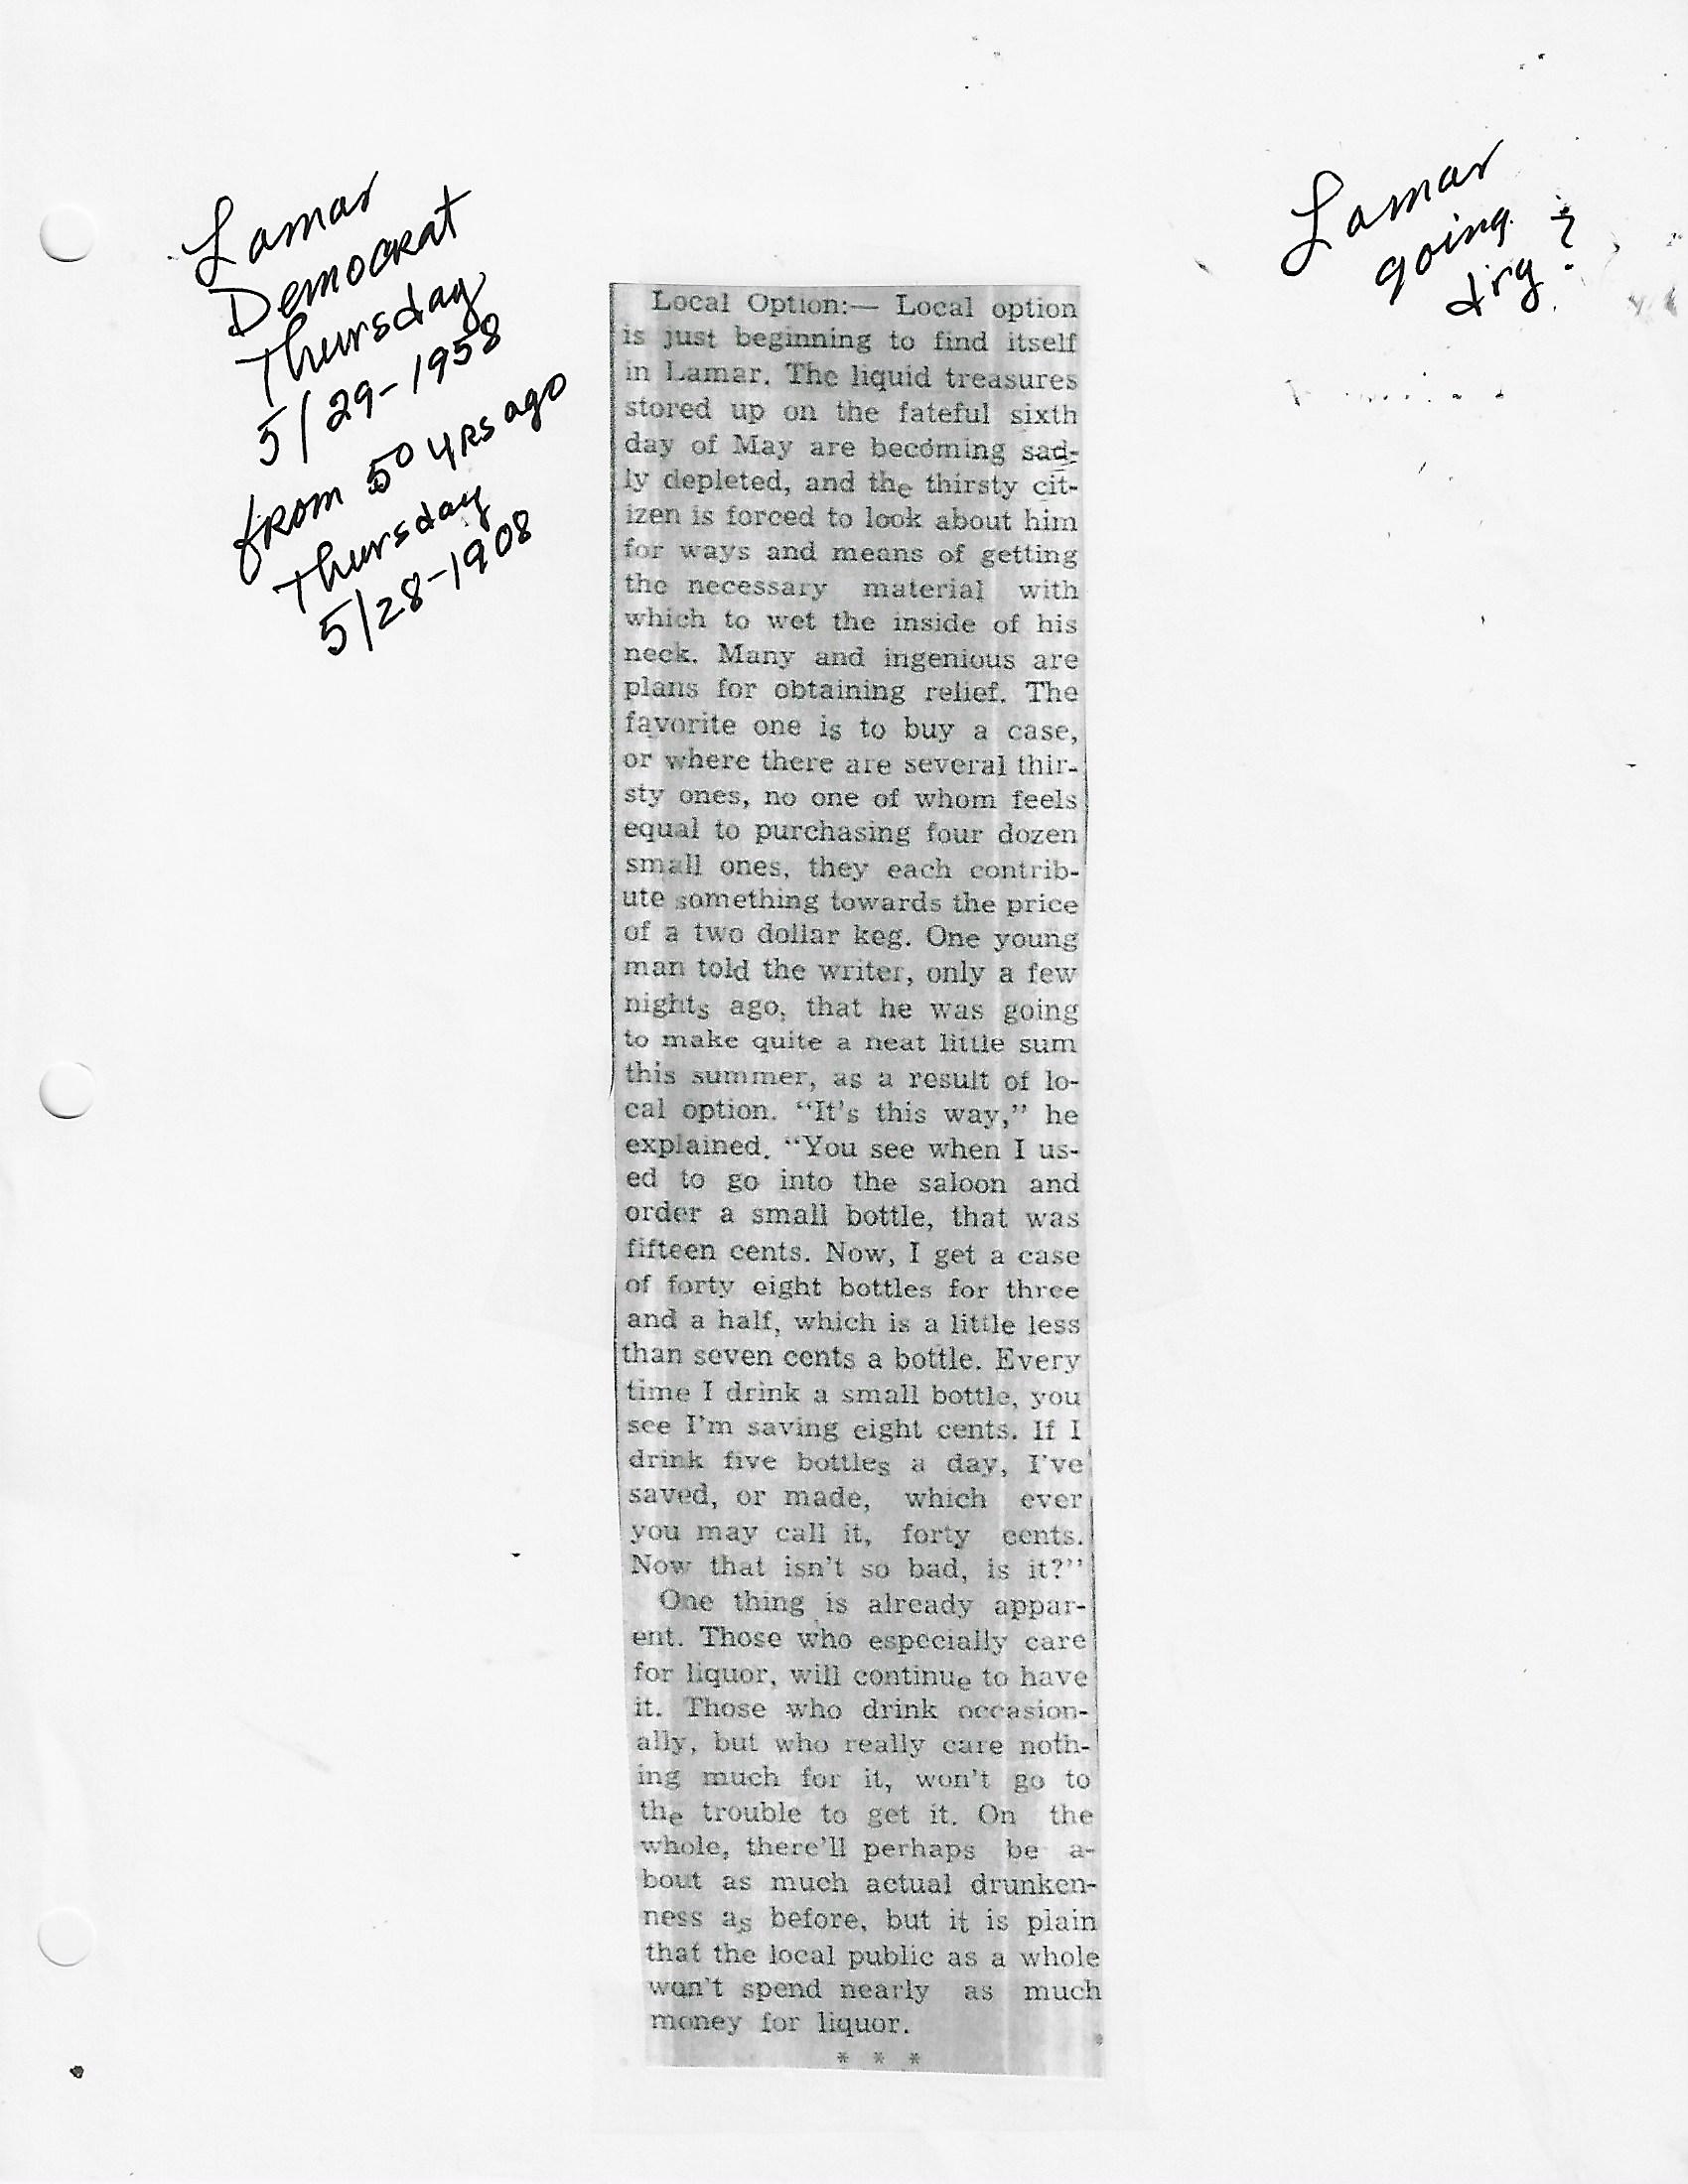 Lamar
Democrat
Thursday
5/29-1958
from 50 yrs ago
Thursday
5/28-1908
Lamar
going
dry?
Local Option:— Local option
is just beginning to find itself
in Lamar. The liquid treasures
stored up on the fateful sixth
day of May are becoming sad-
ly depleted, and the thirsty cit-
izen is forced to look about him
for ways and means of getting
the necessary material with
which to wet the inside of his
neck. Many and ingenious are
plans for obtaining relief. The
favorite one is to buy a case,
or where there are several thir-
sty ones, no one of whom feels
equal to purchasing four dozen
small ones, they each contrib-
ute something towards the price
of a two dollar keg. One young
man told the writer, only a few
nights ago, that he was going
to make quite a neat little sum
this summer, as a result of lo-
cal option. “It's this way,” he
explained. “You see when I us-
ed to go into the saloon and
order a small bottle, that was
fifteen cents. Now, I get a case
of forty eight bottles for three
and a half, which is a little less
than seven cents a bottle. Every
time I drink a small bottle, you
see I'm saving eight cents. If I
drink five bottles a day, I've
saved, or made, which ever
you may call it, forty cents.
Now that isn't so bad, is it?”
One thing is already appar-
ent. Those who especially care
for liquor, will continue to have
it. Those who drink occasion-
ally, but who really care noth-
ing much for it, won't go to
the trouble to get it. On the
whole, there'll perhaps be a-
bout as much actual drunken-
ness as before, but it is plain
that the local public as a whole
won't spend nearly as much
money for liquor.
* * *